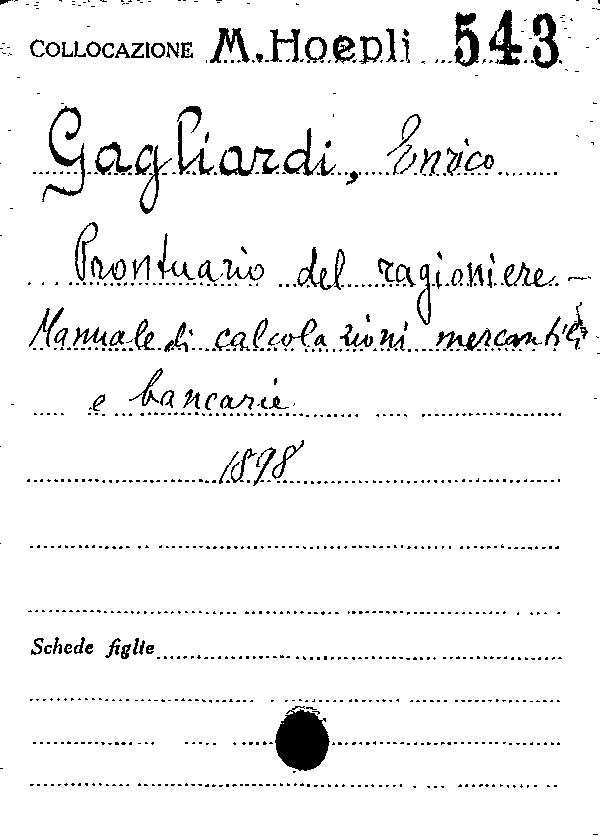 COLLOCAZIONE M. Hoepli 543
Gagliardi, Enrico
Prontuario del ragioniere -
Manuale di calcolazioni mercantili
e bancarie
1898
Schede figlie